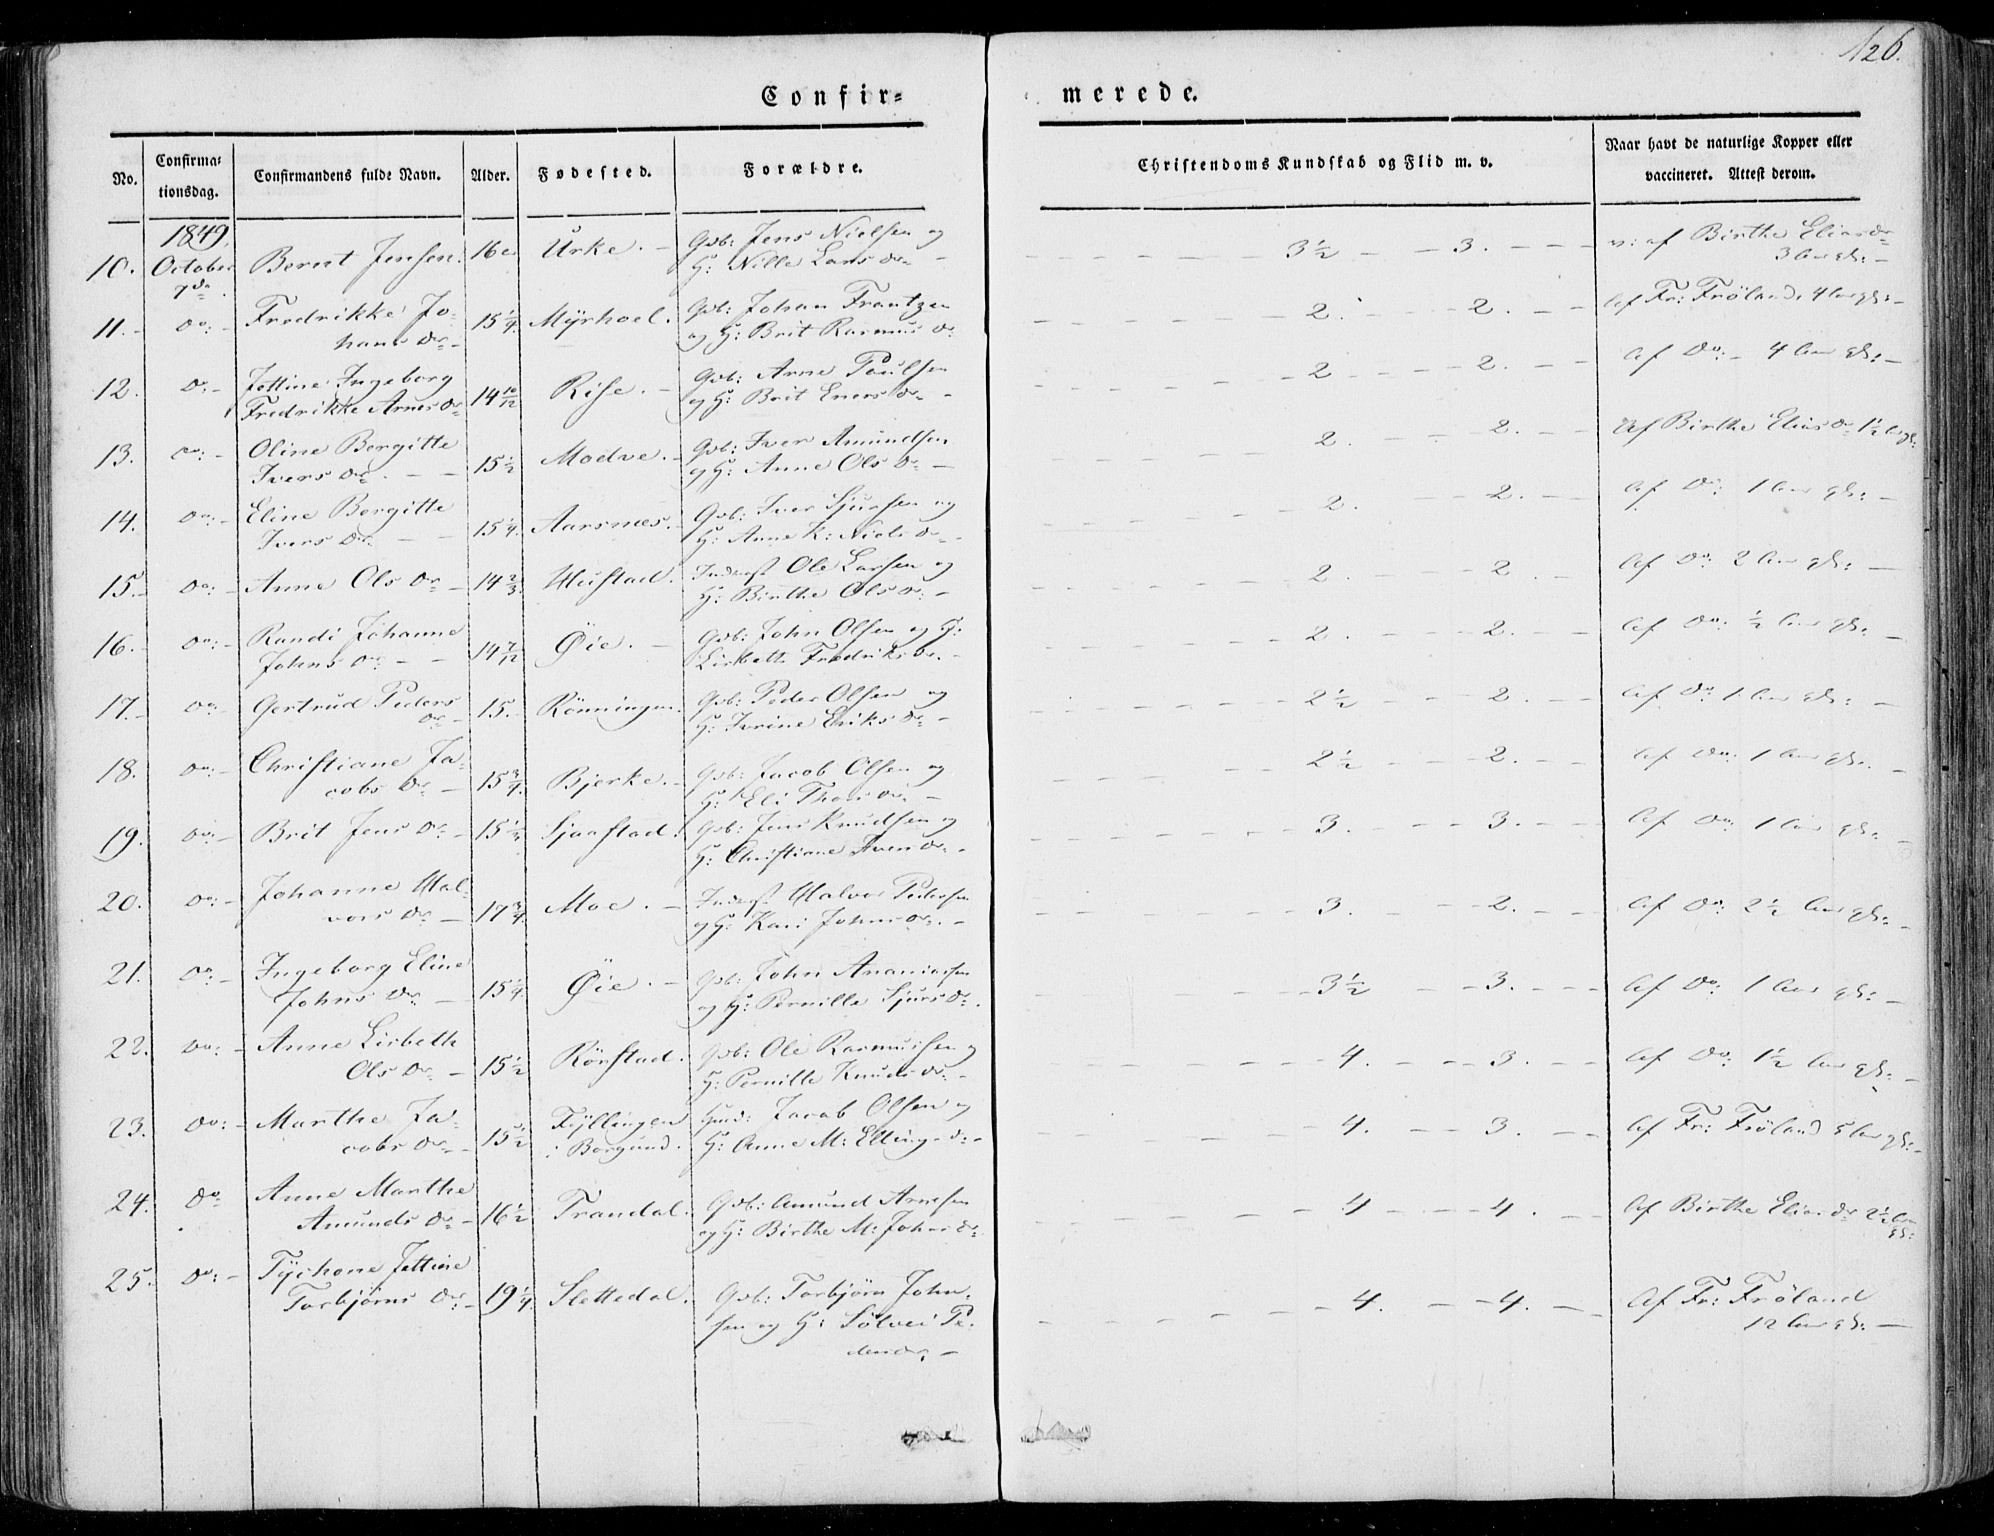 126.
Confir=
merede.
No.
Confirma=
tionsdag.
Confirmandens fulde Navn.
Alder.
Fødested.
Forældre.
Christendoms Kundskab og Flid m. v.
Naar havt de naturlige Kopper eller
vaccineret. Attest derom.
1849,
10. October 7de. Bernt Jensen. 16 Urke. - Gdb: Jens Nielsen og
H: Nille Lars Dr - 3½ - 3. v: af Birthe Elias Dr
3 Aar gl: -
11. - Do: - Fredrikke Jo-
hans Dr - 15¼. Myrhoel. Gdb: Johan Frantzen
og H: Brit Rasmus Dr 2. - 2. Af Fr: Frøland, 4 Aar gl: -
12. Do: - Jettine Ingeborg
Fredrikke Arnes Dr 14 10/12 Rise. - Gdb: Arne Paulsen
og H: Brit Eners Dr - 2 - 2. Af Do: - 4 Aar gl: -
13. Do: - Oline Bergitte
Ivers Dr. - 15½ Modve. - Gdb: Iver Amundsen
og H: Anne Ols Dr - 2. - 2. Af Birthe Elias Dr 1½ Aar gl:
14. Do: - Eline Bergitte
Ivers Dr. - 15¼. Aarsnæs. - Gdb: Iver Sjursen og
H: Anne K: Niels Dr - 2. - 2. Af Do: 1 Aar gl: -
15. - Do: - Anne Ols Dr - 14⅔. Hustad. Inderst Ole Larsen og
H: Birthe Ols Dr: - 2. - 2. Af Do: 2 Aar gl: -
16. - Do: - Randi Johanne
Johns Dr - 14 7/12 Øie. - Gdb: John Olsen og H:
Lisbeth Fredriks Dr. - 2. - 2. Af Do: ½ Aar gl: -
17. - Do: - Gertrud Peders
Dr - 15. - Rönningen. Gdb: Peder Olsen og
H: Iverine Eriks Dr - 2½ - 2. Af Do 1 Aar gl: -
18. Do: - Christiane Ja-
cobs Dr - 15¾. Bjerke. - Gdb: Jacob Olsen og
H: Eli Thores Dr. - 2½ - 2. Af Do: 1 Aar gl: -
19. Do: - Brit Jens Dr - 15½ Sjaastad. Gdb: Jens Knudsen og
H: Christiane Iver Dr. - 3. - 3. Af Do: 1 Aar gl: -
20. Do: - Johanne Hal-
vors Dr - 17¾. Moe. - Inderst Halvor Pedersen
og H: Kari Johns Dr. - 3. - 2. Af Do: 2½ Aar gl: -
21. Do: - Ingeborg Eline
Johns Dr. - 15¼. Øie. - Gdb: John Ananiassen
og H: Pernille Sjurs Dr. 3½ - 3. Af Do: 1 Aar gl: -
22. Do: - Anne Lisbeth
Ols Dr. - 15½ Rörstad. Gdb: Ole Rasmussen og
H: Pernille Knuds Dr. - 4. - 3. Af Do: 1½ Aar gl: -
23. Do: - Marthe Ja-
cobs Dr. - 15½ Fyllingen
i Borgund. Hmd: Jacob Olsen og
H: Anne M: Elling- D: - 4. - 3. Af Fr: Frøland 5 Aar gl: -
24. Do Anne Marthe
Amunds Dr - 16½ Trandal. Gdb: Amund Arnesen
og H: Birthe M: Johns Dr. 4 - 4. Af Birthe Elias Dr 2½ Aar
gl:
25. Do: - Tychone Jettine
Torbjørns Dr: - 19¼. Slettedal. Gdb: Torbjørn John-
sen og H: Sølvei Pe-
ders Dr. - 4. - 4. Af Fr: Frøland
12 Aar gl: -